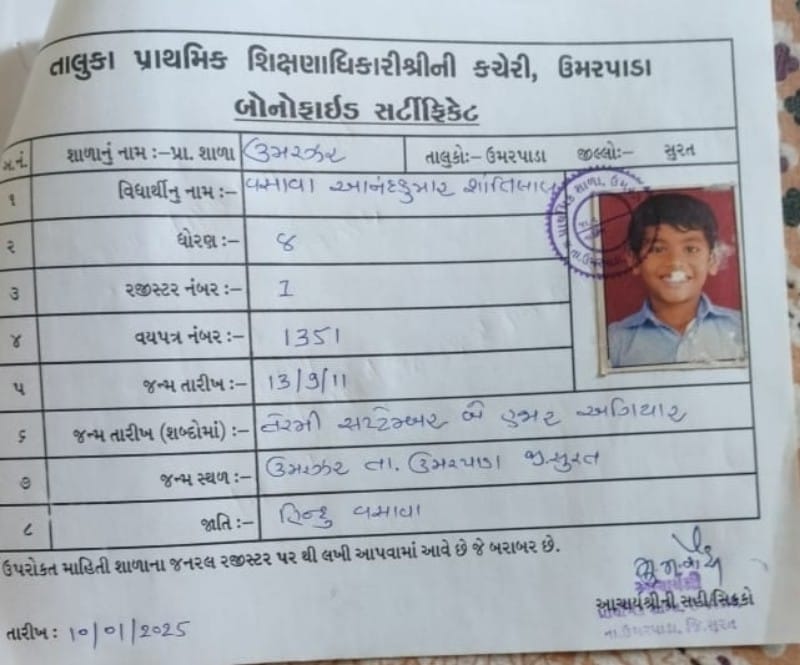 તાલુકા પ્રાથમિક શિક્ષણાધિકારીશ્રીની કચેરી, ઉમરપાડા
બોનોફાઇડ સર્ટીફિકેટ
અ.નં. શાળાનું નામ :-પ્રા. શાળા ઉમરઝર તાલુકો:- ઉમરપાડા જીલ્લો:- સુરત
૧ વિદ્યાર્થીનુ નામ :- વસાવા આનંદકુમાર શાંતિલાલ
૨ ધોરણ :- ૪
૩ રજીસ્ટર નંબર :- 1
૪ વયપત્ર નંબર :- 1351
૫ જન્મ તારીખ :- 13/9/11
૬ જન્મ તારીખ (શબ્દોમાં) :- તેરમી સપ્ટેમ્બર બે હજાર અગિયાર
૭ જન્મ સ્થળ :- ઉમરઝર તા. ઉમરપાડા જી.સુરત
૮ જાતિ :- હિન્દુ વસાવા
ઉપરોકત માહિતી શાળાના જનરલ રજીસ્ટર પર થી લખી આપવામાં આવે છે જે બરાબર છે.
આચાર્યશ્રી
આચાર્યશ્રીની સહી/સિક્કો
તા.ઉમરપાડા, જિ.સુરત
તારીખ : 10/01/2025